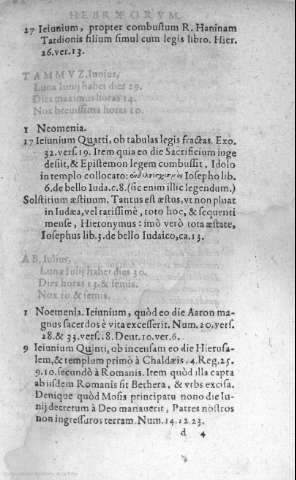 HEBRÆORVM.
27 Ieiunium, propter combustum R. Haninam
Tardionis filium simul cum legis libro. Hier.
26.ver.13.
TAMMVZ, Iunius,
Luna Iunij habet dies 29.
Dies maximus horas 14.
Nox breuissima horas 10.
1 Neomenia.
17 Ieiunium Quarti, ob tabulas legis fractas. Exo.
32. vers 19. Item quia eo die Sacrificium iuge
desiit, & Epistemon legem combussit, Idolo
in templo collocato: Iosepho lib.
6. de bello Iuda. c. 8. (sic enim illic legendum.)
Solstitium æstiuum. Tantus est æstus, vt non pluat
in Iudæa, vel rarissimè, toto hoc, & sequenti
mense, Hieronymus: imò verò tota æstate,
Iosephus lib. 3. de bello Iudaico, ca. 13.
AB, Iulius,
Luna Iulij habet dies 30.
Dies horas 13. & semis.
Nox 10 & semis.
1 Noemenia. Ieiunium, quòd eo die Aaron ma-
gnus sacerdos è vita excesserit. Num. 20. vers.
28. & 33. vers. 8. Deut. 10. ver. 6.
9 Ieiunium Quinti, ob incensam eo die Hierosa-
lem, & templum primò à Chaldæis. 4. Reg. 25.
9. 10. secundò à Romanis. Item quòd illa capta
ab iisdem Romanis sit Bethera, & vrbs excisa.
Denique quòd Mosis principatu nono die Iu-
lij decretum à Deo manauerit, Patres nostros
non ingressuros terram. Num. 14. 12. 23.
d 4